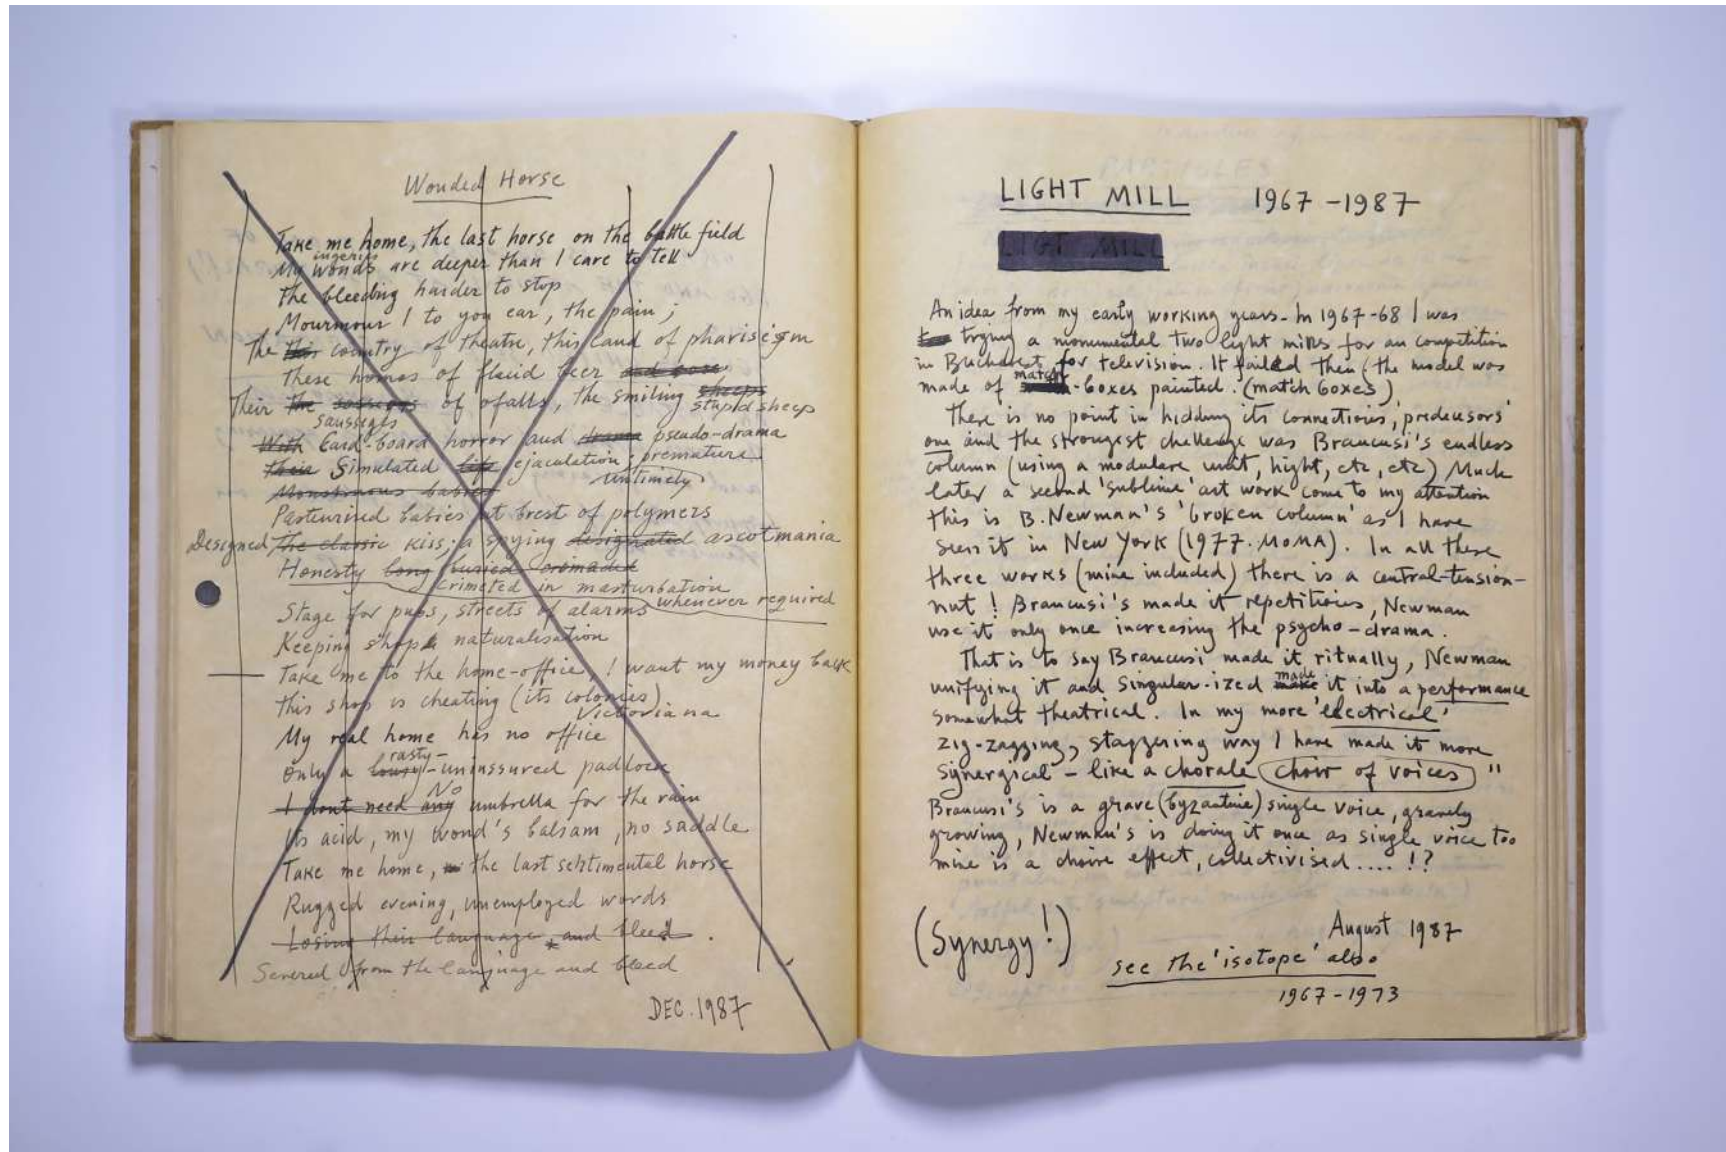 Wonded Horse
Take me home, the last horse on the battle field
ingeries
My wonds are deeper than I care to tell
the bleeding harder to stop
Mourmour I to you ear, the pain;
The this country of theatre, this land of phariseism
These homes of flacid beer and
Their the of ofalls, the smiling sheeps
saussiges stupid sheep
With Card-board horror and drama pseudo-drama
their Simulated life ejaculation; premature
untimely
Monstruous babies
Pasteurised babies at brest of polymers
Designed the classic kiss; a spying designated ascotmania
Honesty long buried
crimeted in masturbation
Stage for pubs, streets of alarms whenever required
Keeping shops naturalisation
Take me to the home-office, I want my money back
this shop is cheating (its colonies)
Victoriana
My real home has no office
rasty-
Only a lousy-uninssured padlock
No
I dont need any umbrella for the rain
Its acid, my wond's balsam, no saddle
Take me home, the last sentimental horse
Rugged evening, unemployed words
Losing their language * and bleed.
Severed from the language and bleed
DEC. 1987
LIGHT MILL 1967-1987
LIGT MILL
An idea from my early working years - In 1967-68 I was
trying a monumental two light mills for an competition
in Bucharest for television. It failed then (the model was
match
made of -boxes painted. (match boxes)
There is no point in hidding its connections, 'predeusors'
one and the strongest challenge was Brancusi's endless
column (using a modulare unit, hight, etc, etc) Much
later a second 'sublime' art work come to my attention
this is B. Newman's 'broken column' as I have
seen it in New York (1977. MoMA). In all these
three works (mine included) there is a central-tension-
nut! Brancusi's made it repetitious, Newman
use it only once increasing the psycho-drama.
That is to say Brancusi made it ritually, Newman
made
unifying it and singular-ized make it into a performance
somewhat theatrical. In my more 'electrical'
zig-zagging, staggering way I have made it more
synergical - like a chorale (choir of voices) "
Brancusi's is a grave (byzantine) single voice, gravely
growing, Newman's is doing it once as single voice too
mine is a choire effect, collectivised....!?
(Synergy!)
August 1987
see the 'isotope' also
1967-1973